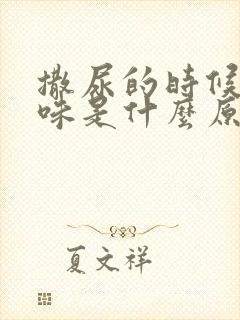 撒尿的時候
味是什麼原
夏文祥